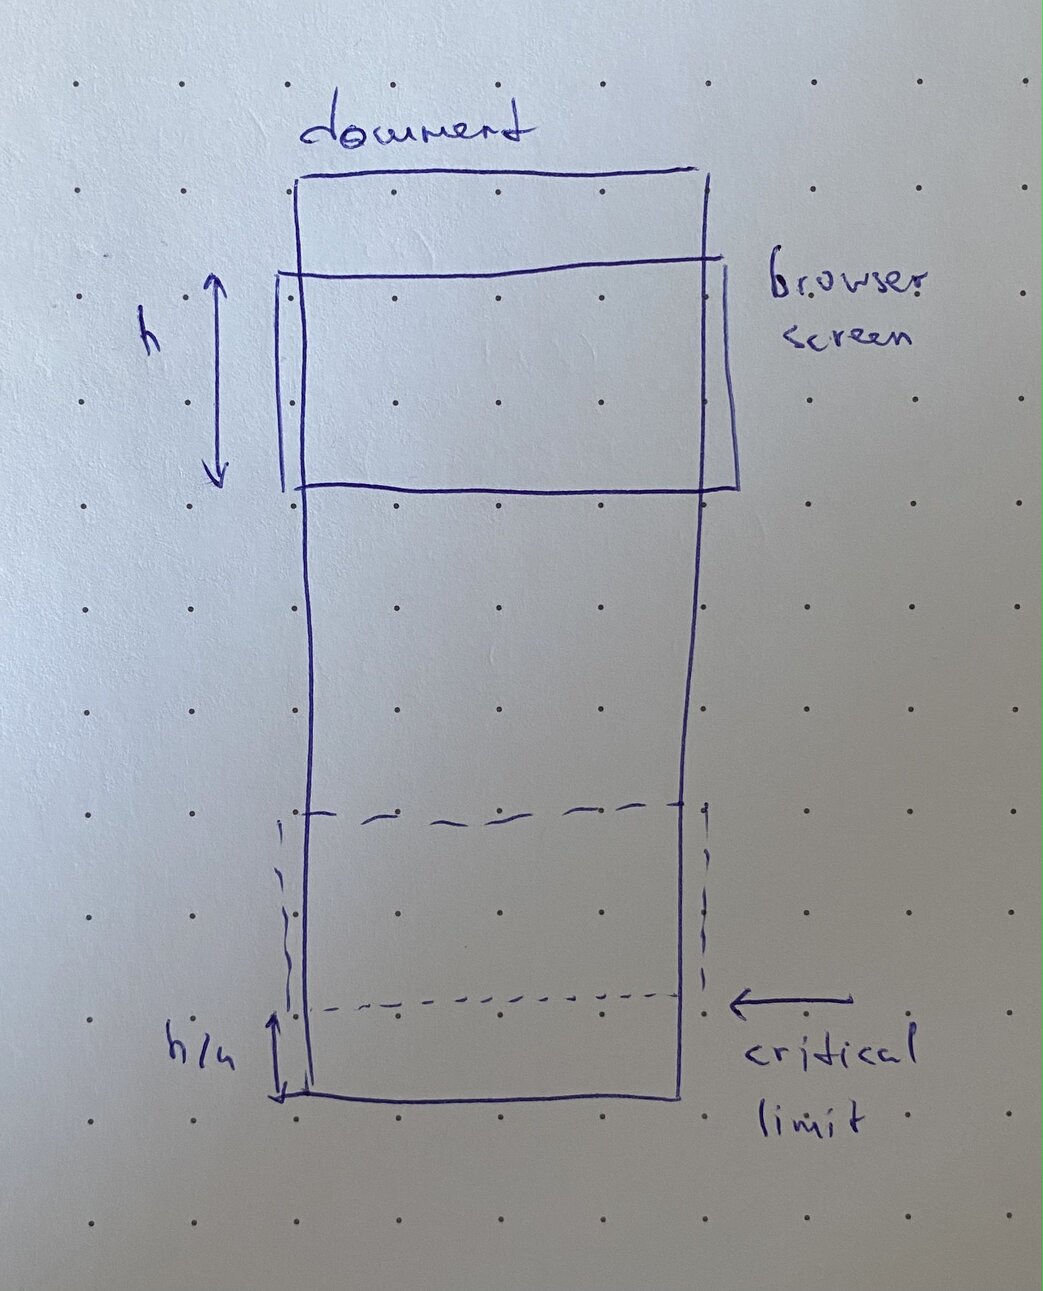 document
h
browser
screen
h/4
critical
limit